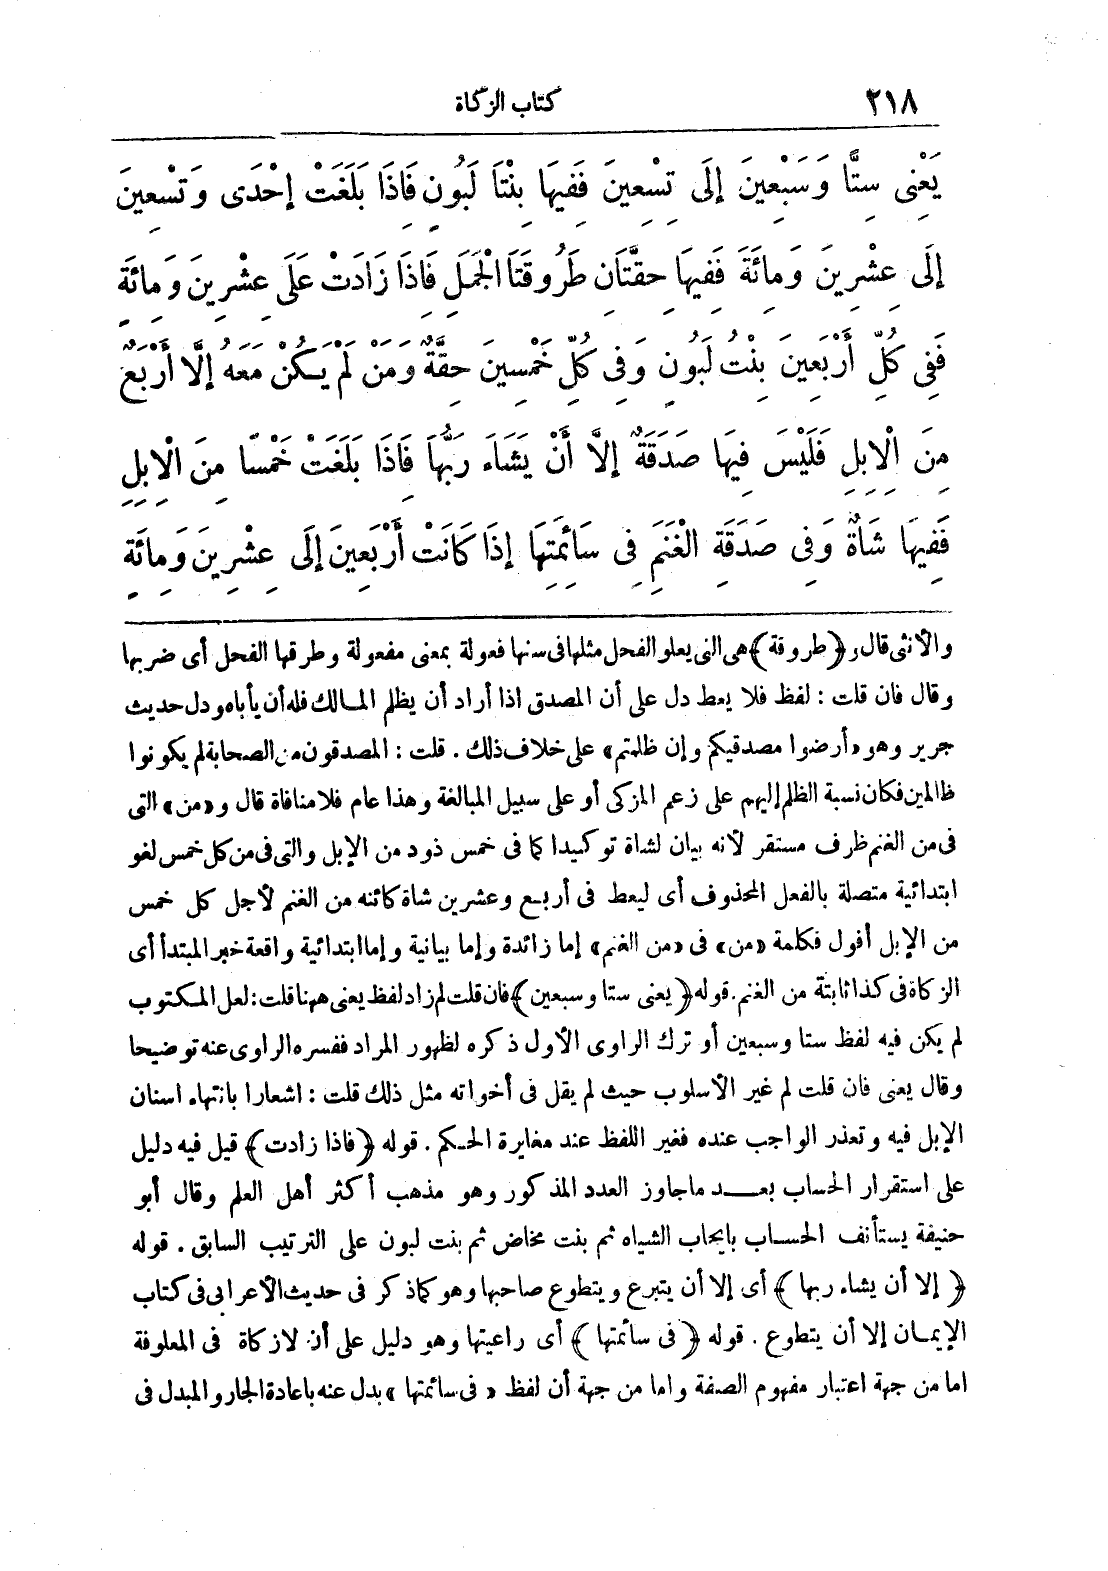 ٢١٨ كتاب الزكاة
يَعْنِى سِتًّا وَسَبْعِينَ إِلَى تِسْعِينَ فَفِيهَا بِنْتَا لَبُونٍ فَاذَا بَلَغَتْ إِحْدَى وَتِسْعِينَ
إِلَى عِشْرِينَ وَمِائَةَ فَفِيهَا حِقَّتَانِ طَرُوقَتَا الْجَمَلِ فَاذَا زَادَتْ عَلَى عِشْرِينَ وَمِائَةٍ
فَفِى كُلِّ أَرْبَعِينَ بِنْتُ لَبُونٍ وَفِى كُلِّ خَمْسِينَ حِقَّةٌ وَمَنْ لَمْ يَكُنْ مَعَهُ إِلَّا أَرْبَعٌ
مِنَ الْاِبِلِ فَلَيْسَ فِيهَا صَدَقَةٌ إِلَّا أَنْ يَشَاءَ رَبُّهَا فَاذَا بَلَغَتْ خَمْسًا مِنَ الْاِبِلِ
فَفِيهَا شَاةٌ وَفِى صَدَقَةِ الْغَنَمِ فِى سَائِمَتِهَا إِذَا كَانَتْ أَرْبَعِينَ إِلَى عِشْرِينَ وَمِائَةٍ
والأنثى قال و﴿طروقة﴾ هى التى يعلو الفحل مثلها فى سنها فعولة بمعنى مفعولة وطرقها الفحل أى ضربها
وقال فان قلت : لفظ فلا يعط دل على أن المصدق اذا أراد أن يظلم المالك فله أن يأباه ودل حديث
جرير وهو «أرضوا مصدقيكم وإن ظلمتم» على خلاف ذلك . قلت : المصدقون من الصحابة لم يكونوا
ظالمين فكان نسبة الظلم إليهم على زعم المزكى أو على سبيل المبالغة وهذا عام فلا منافاة قال و«من» التى
فى من الغنم ظرف مستقر لأنه بيان لشاة توكيدا كما فى خمس ذود من الإبل والتى فى من كل خمس لغو
ابتدائية متصلة بالفعل المحذوف أى ليعط فى أربع وعشرين شاة كائنه من الغنم لأجل كل خمس
من الإبل أقول فكلمة «من» فى «من الغنم» إما زائدة وإما بيانية وإما ابتدائية واقعة خبر المبتدأ أى
الزكاة فى كذا ثابتة من الغنم. قوله ﴿يعنى ستا وسبعين﴾ فان قلت لم زاد لفظ يعنى ههنا قلت: لعل المكتوب
لم يكن فيه لفظ ستا وسبعين أو ترك الراوى الأول ذكره لظهور المراد ففسره الراوى عنه توضيحا
وقال يعنى فان قلت لم غير الأسلوب حيث لم يقل فى أخواته مثل ذلك قلت : اشعارا بانتهاء اسنان
الإبل فيه وتعذر الواجب عنده فغير اللفظ عند مغايرة الحكم . قوله ﴿فاذا زادت﴾ قيل فيه دليل
على استقرار الحساب بعد ماجاوز العدد المذكور وهو مذهب أكثر أهل العلم وقال أبو
حنيفة يستأنف الحساب بايجاب الشياه ثم بنت مخاض ثم بنت لبون على الترتيب السابق . قوله
﴿إلا أن يشاء ربها﴾ أى إلا أن يتبرع ويتطوع صاحبها وهو كما ذكر فى حديث الأعرابى فى كتاب
الإيمان إلا أن يتطوع . قوله ﴿فى سائمتها﴾ أى راعيتها وهو دليل على أن لازكاة فى المعلوفة
اما من جهة اعتبار مفهوم الصفة واما من جهة أن لفظ «فى سائمتها» بدل عنه باعادة الجار والمبدل فى